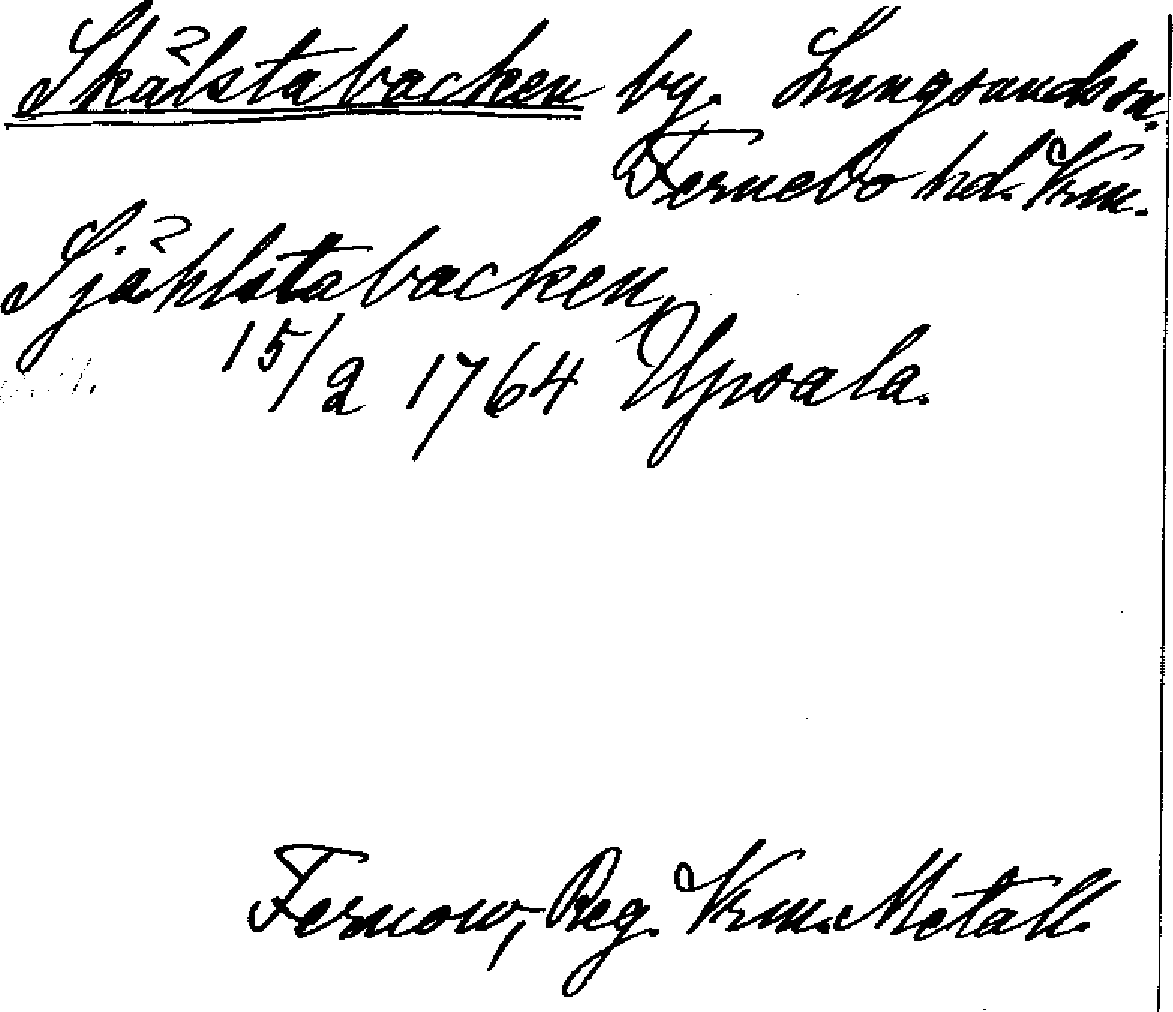 Skålstabacken by. Lungsunds sn.
Fernebo hd. Vrm.
Sjåhlstabacken,
15/2 1764 Upsala.
Fernow, Reg. Vrm. Metall.